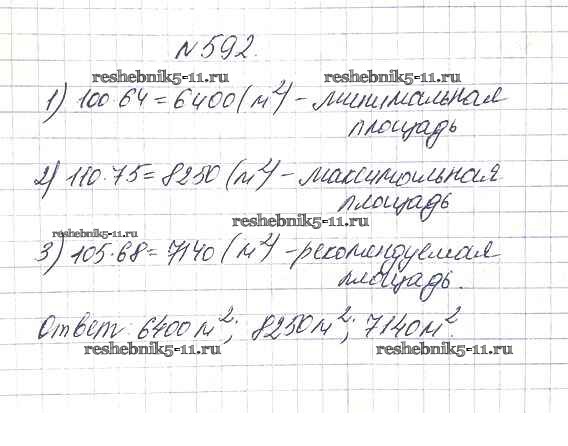 №592.
reshebnik5-11.ru reshebnik5-11.ru
1) 100·64=6400(м²) - минимальная
площадь
2) 110·75=8250(м²) - максимальная
площадь
reshebnik5-11.ru
reshebnik5-11.ru
3) 105·68=7140(м²) - рекомендуемая
площадь.
Ответ: 6400м²; 8250м²; 7140м².
reshebnik5-11.ru reshebnik5-11.ru